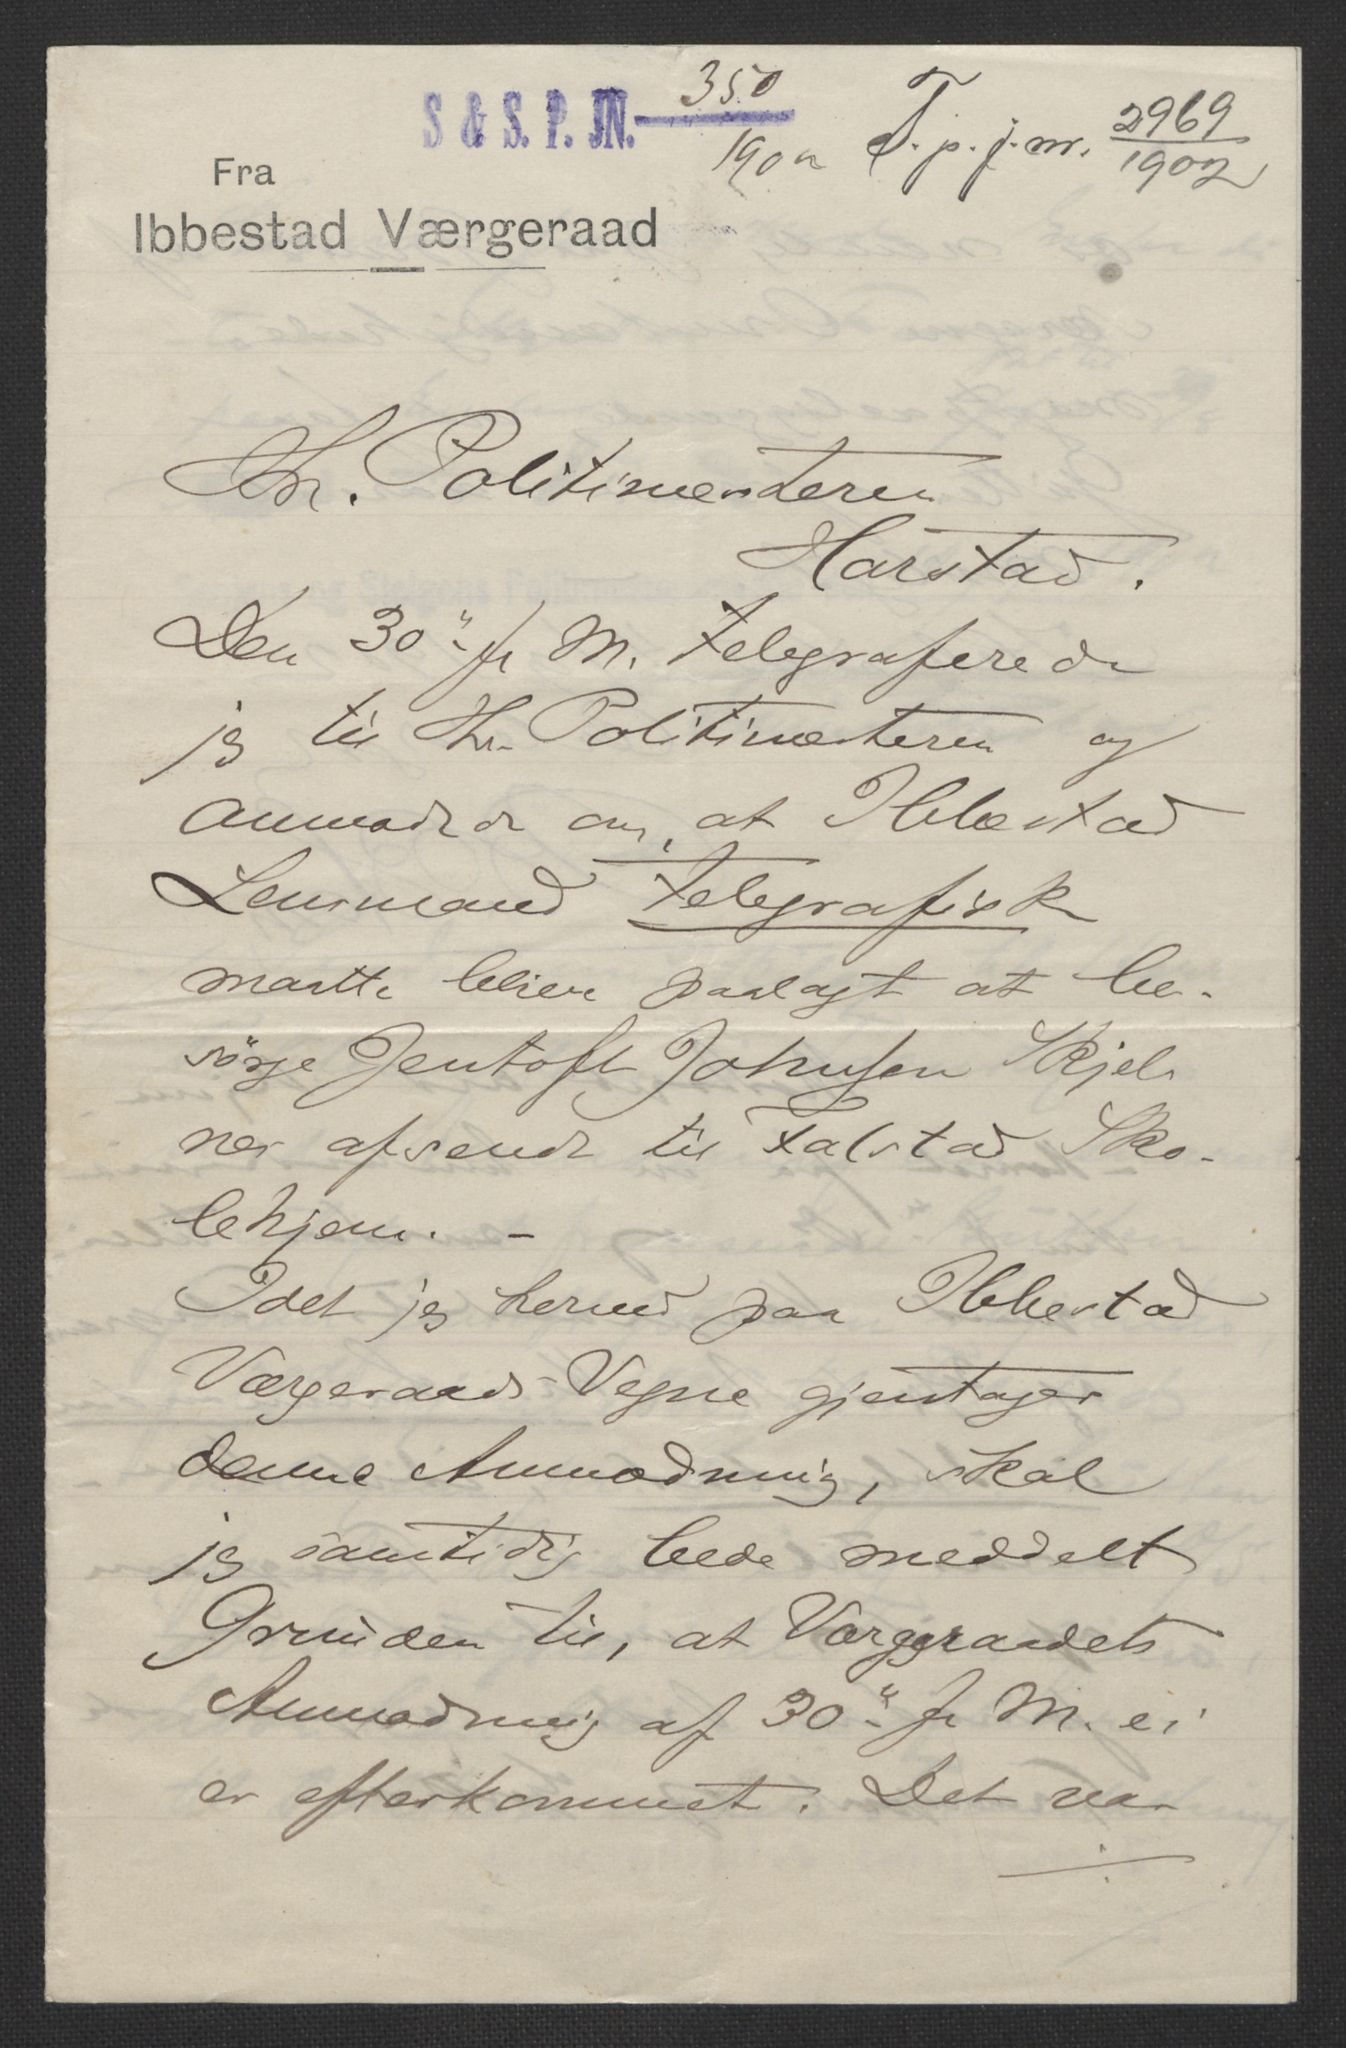 S & S. P. JN. 350/1902 T. p. j. nr. 2969/1902
Fra
Ibbestad Værgeraad
Hr. Politimesteren
Harstad.
Den 30" fr M. telegraferede
jeg til Hr. Politimesteren og
anmodede om, at Ibbestad
Lensmand telegrafisk
maatte blive paalagt at be-
sørge Jentoft Johnsen Skjel-
nes afsendt til Falstad Sko-
lehjem. -
Idet jeg herved paa Ibbestad
Værgeraads Vegne gjentager
denne Anmodning, skal
jeg samtidig bede meddelt
Grunden til, at Værgeraadets
Anmodning af 30" fr M. ei
er efterkommet. Det var